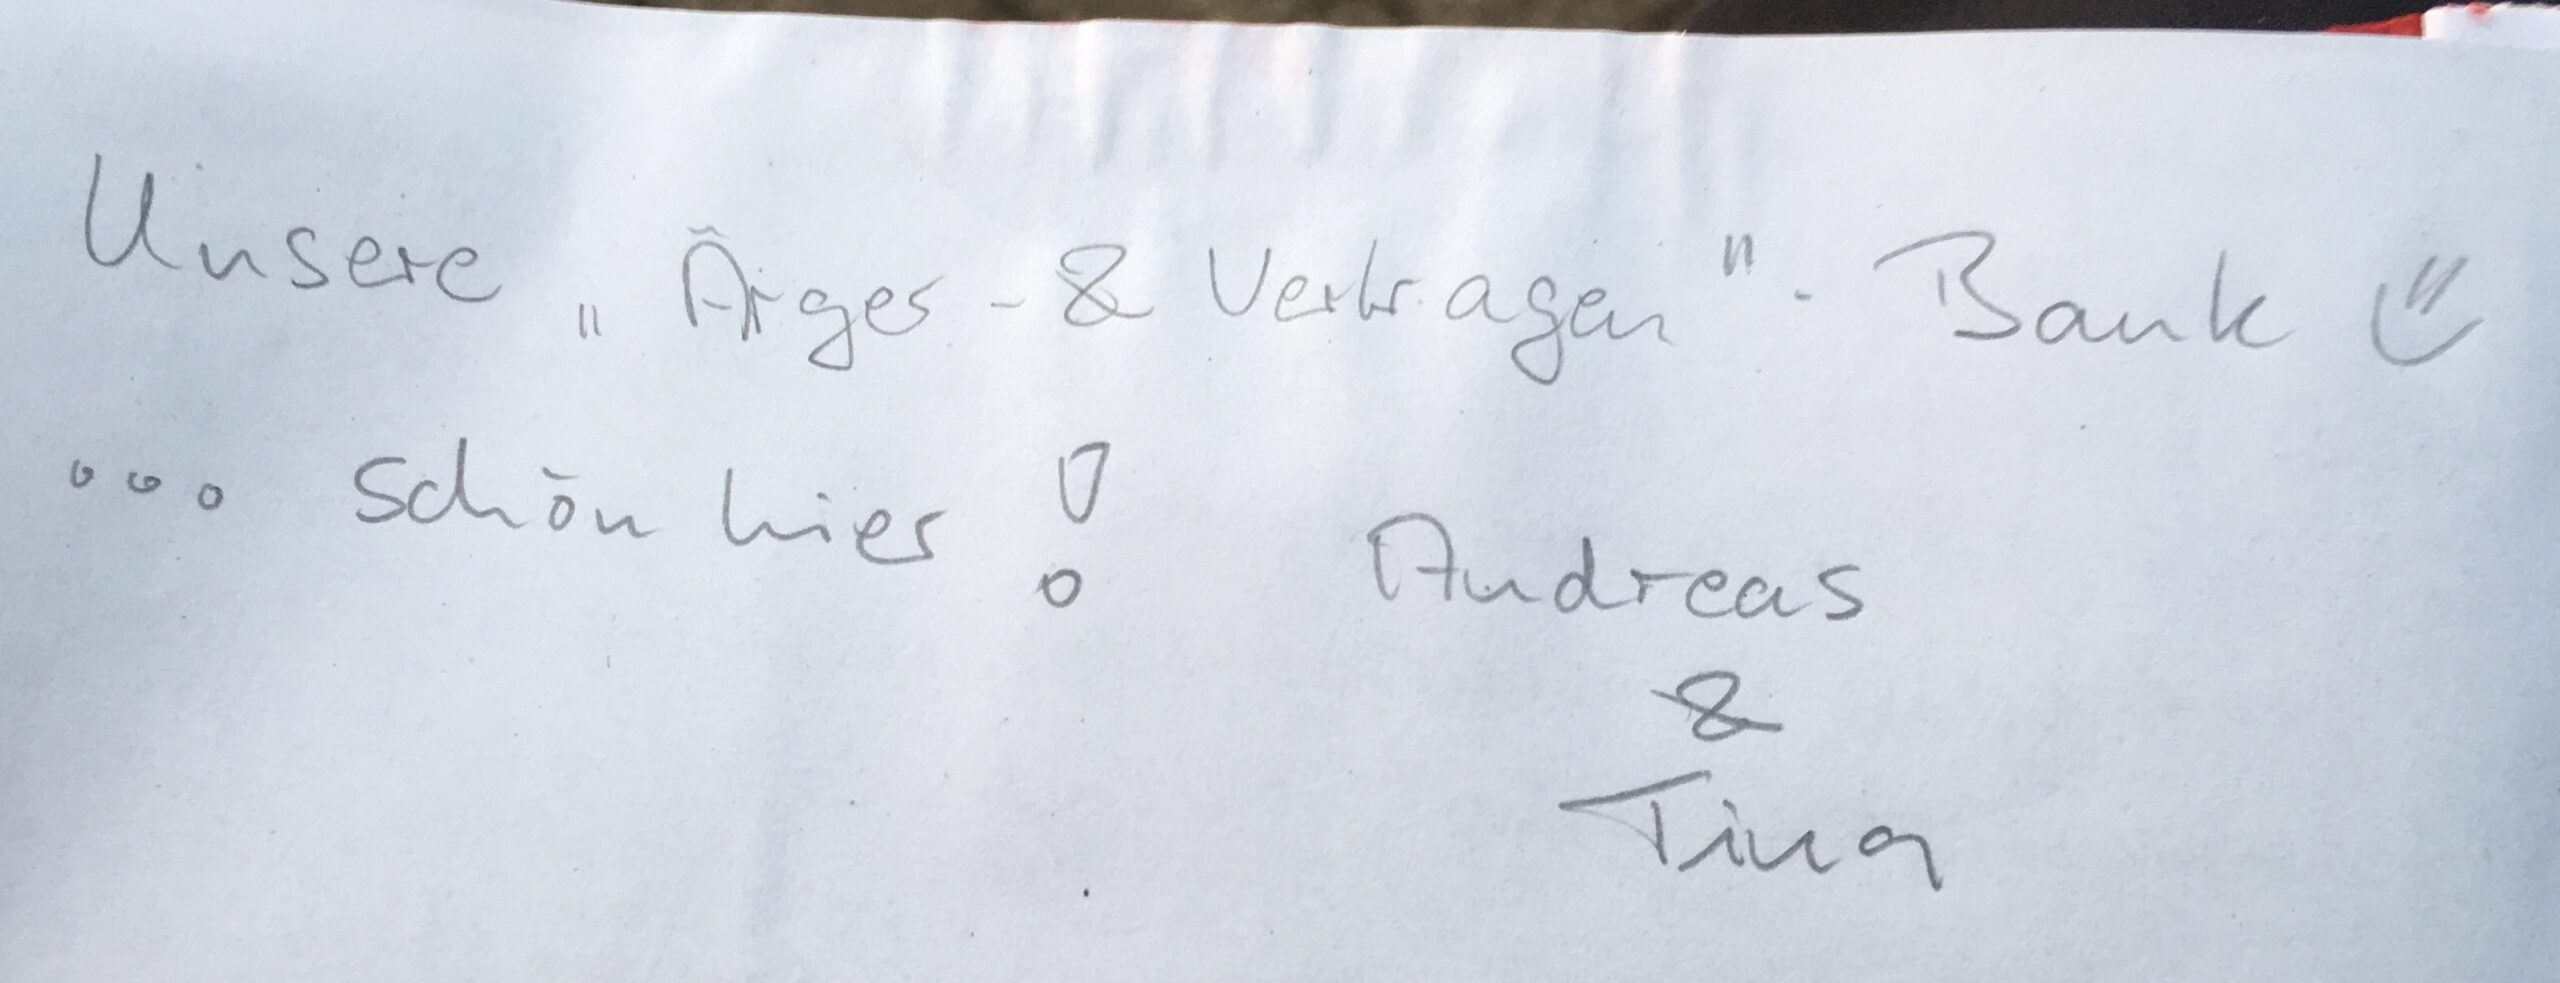 Unsere „Ärger-& Vertragen"-Bank
... schön hier! Andreas
&
Tina